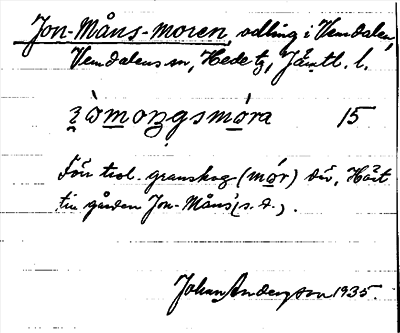 Jon-Måns-moren, odling i Vemdalen,
Vemdalens sn, Hede tg, Jämtl. l.
ʒòmoŋgsmóra 15
För trol. granskog (mór) där, Hört
till gården Jon-Måns (s. d.).
Johan Anderzson 1935.